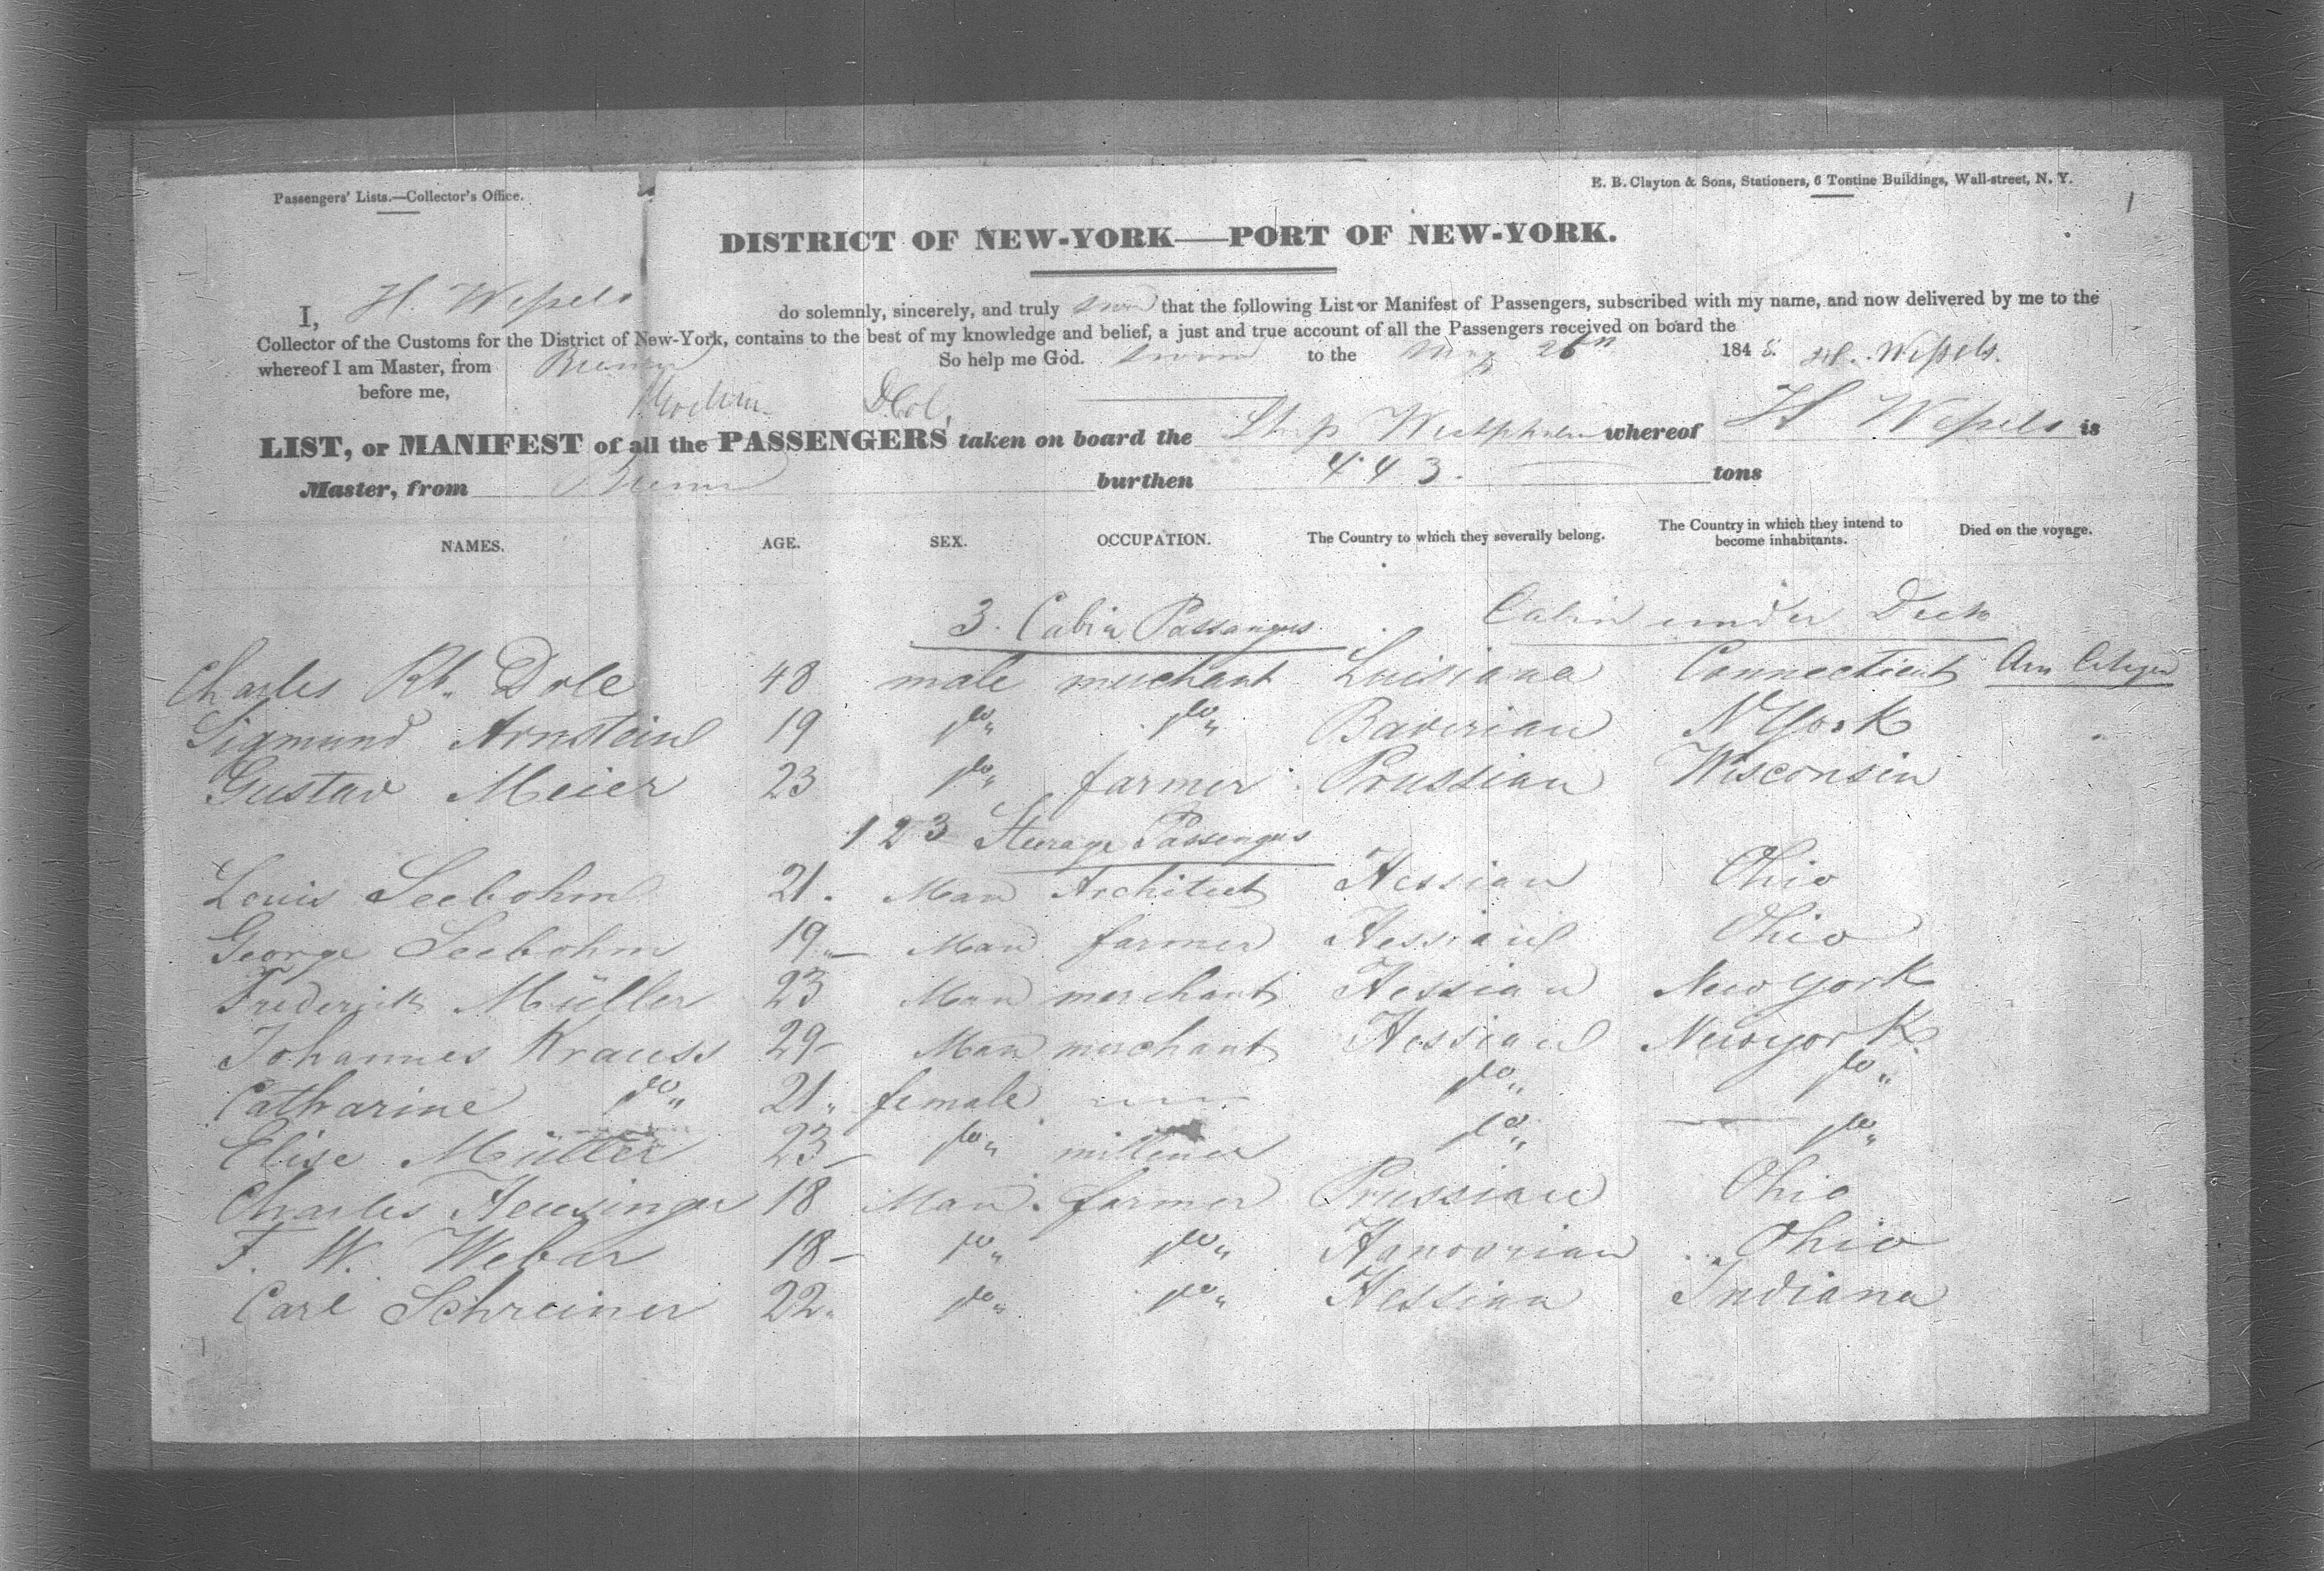 Passengers' Lists.—Collector's Office.
E. B. Clayton & Sons, Stationers, 6 Tontine Buildings, Wall-street, N. Y.
1
DISTRICT OF NEW-YORK—PORT OF NEW-YORK.
I, H. Wessels do solemnly, sincerely, and truly that the following List or Manifest of Passengers, subscribed with my name, and now delivered by me to the
Collector of the Customs for the District of New-York, contains to the best of my knowledge and belief, a just and true account of all the Passengers received on board the
whereof I am Master, from Bremen So help me God. Sworn to the May 26th 1848. H. Wessels.
before me, DCol.
LIST, or MANIFEST of all the PASSENGERS taken on board the Ship whereof H Wessels is
Master, from Bremen burthen 443. tons
NAMES. AGE. SEX. OCCUPATION. The Country to which they severally belong. The Country in which they intend to become inhabitants. Died on the voyage.
3. Cabin Passangers Cabin under Deck
Charles Rb. Dole 48 male merchant Luisiana Connecticut Am Citizen
Sigmund Arnstein 19 do do Baverian N York
Gustav Meier 23 do farmer Prussian Wisconsin
123 Steerage Passengers
Louis Seebohm 21. Man Architect Hessian Ohio
George Seebohm 19 Man farmer Hessian Ohio
Frederick Müller 23 Man merchant Hessian New York
Johannes Krauss 29 Man merchant Hessian New york
Catharine do 21 female do do
Elise Müller 23 do milliner do do
Charles Heusinger 18 Man farmer Prussian Ohio
F. W. Weber 18 do do Hanovrian Ohio
Carl Schreiner 22 do do Hessian Indiana